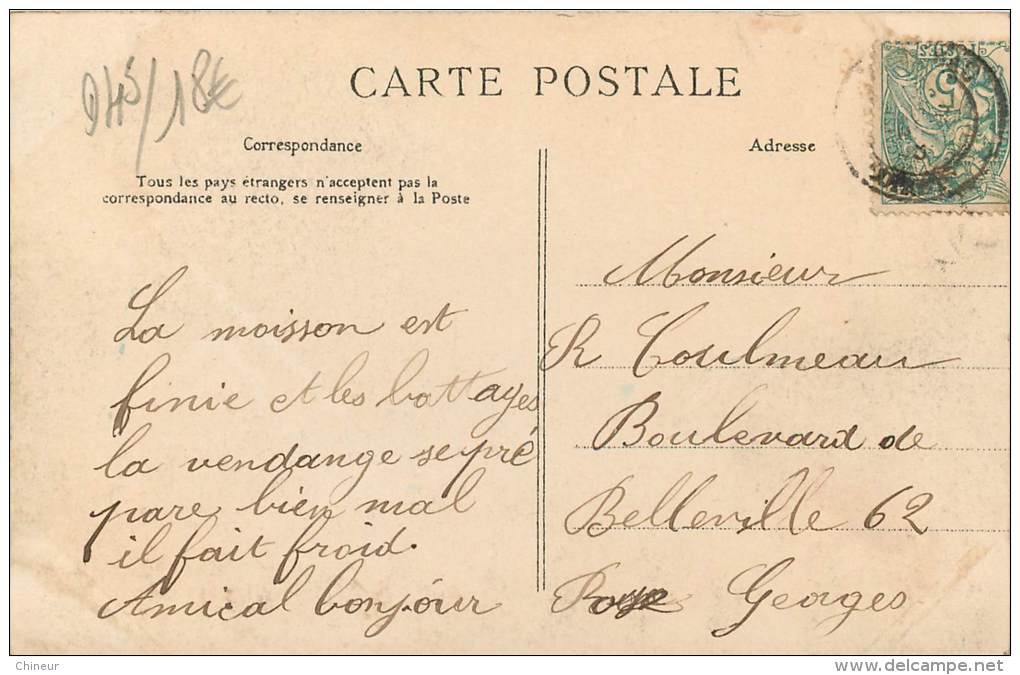 945/18€
CARTE POSTALE
Correspondance
Tous les pays étrangers n'acceptent pas la
correspondance au recto, se renseigner à la Poste
La moisson est
finie et les battages
la vendange se pré
pare bien mal
il fait froid.
Amical bonjour
Adresse
5
Monsieur
R Coulmeau
Boulevard de
Belleville 62
Georges
Chineur
www.delcampe.net